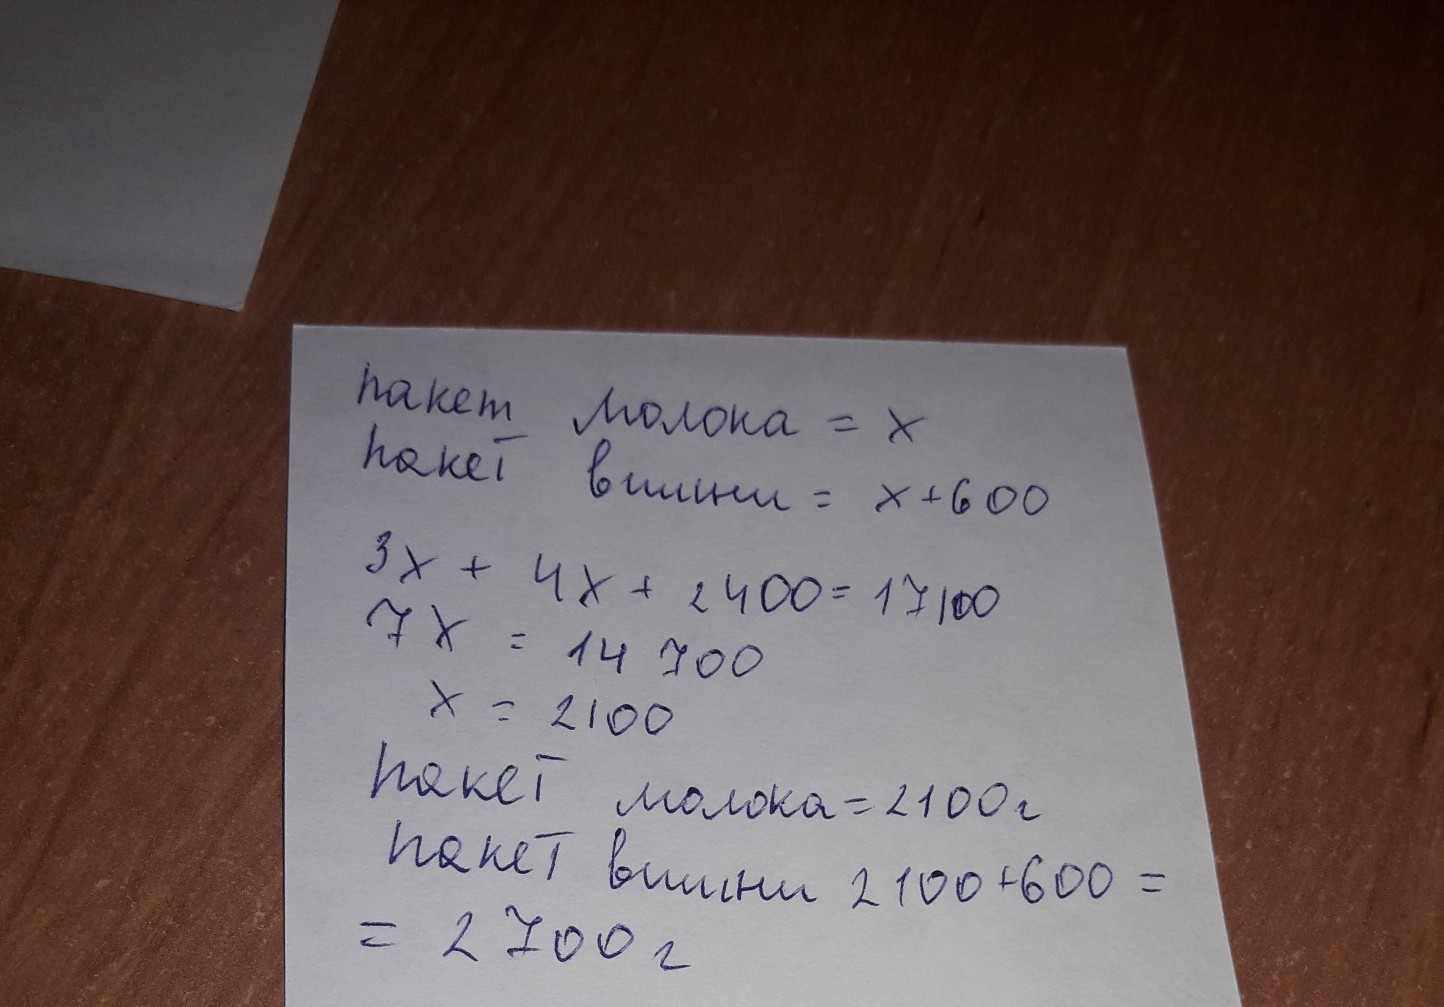 пакет молока = x
пакет вишни = x+600
3x + 4x + 2400 = 17100
7x = 14 700
x = 2100
пакет молока = 2100г
пакет вишни 2100+600 =
= 2700г